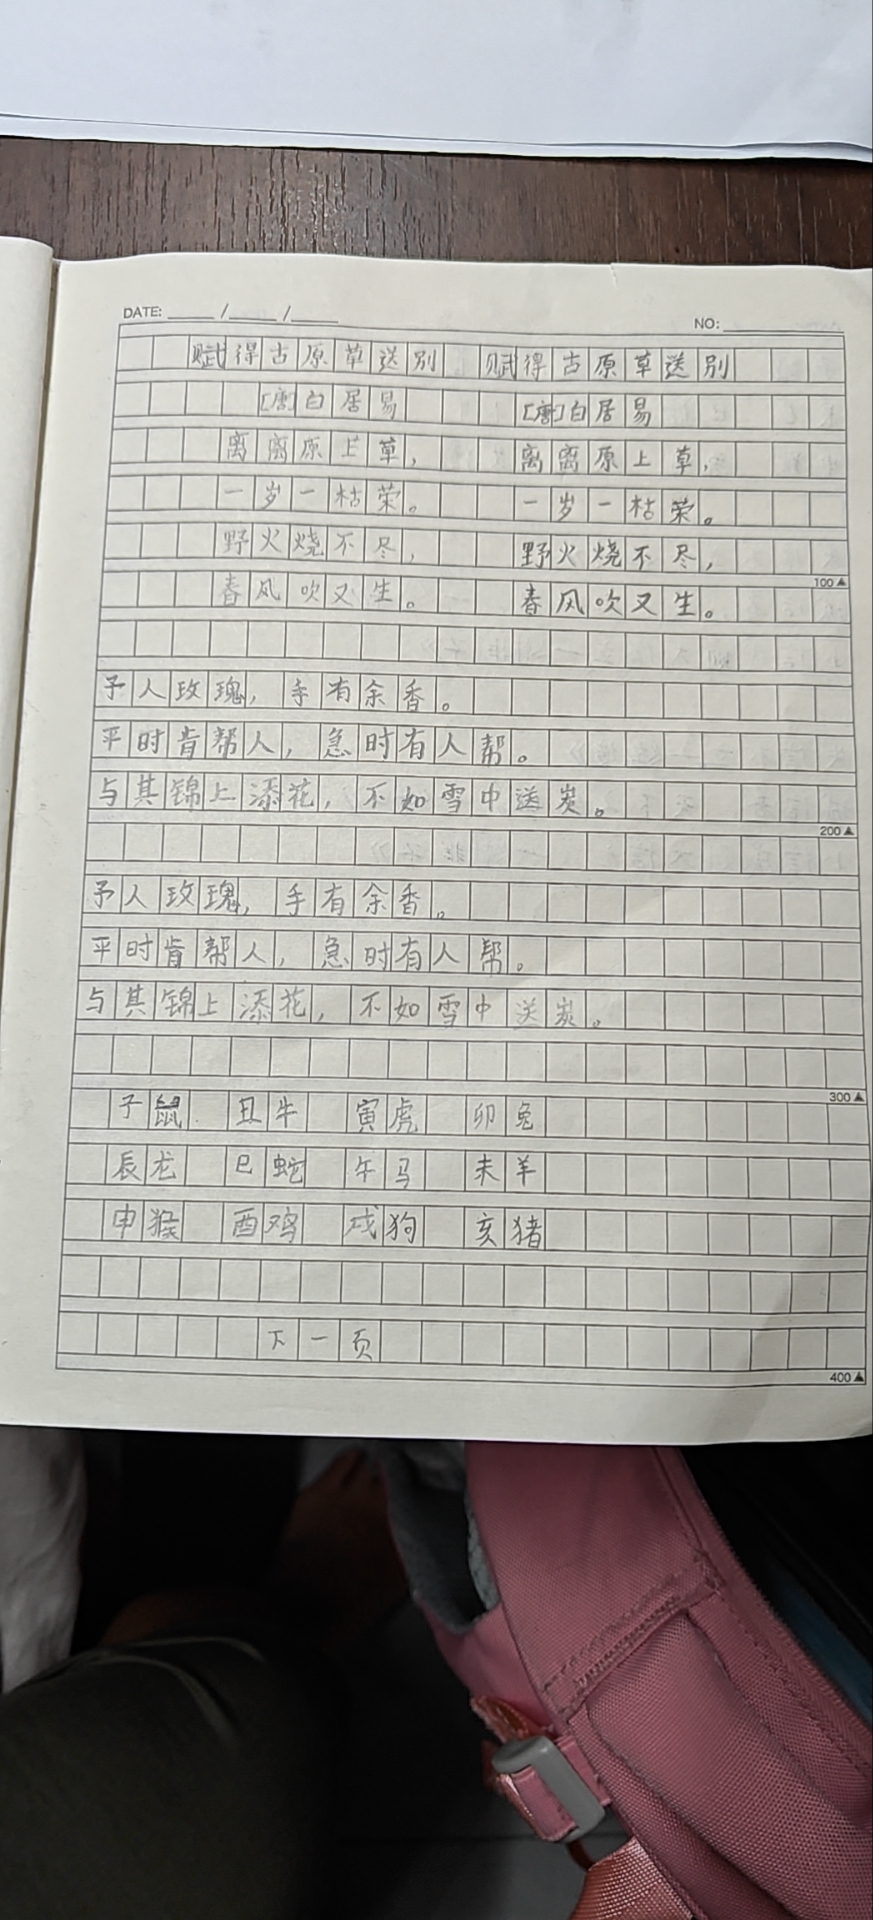 DATE: ____ / ____ / ____
NO: ________
赋得古原草送别 赋得古原草送别
[唐]白居易 [唐]白居易
离离原上草， 离离原上草，
一岁一枯荣。 一岁一枯荣。
野火烧不尽， 野火烧不尽，
100▲
春风吹又生。 春风吹又生。
予人玫瑰，手有余香。
平时肯帮人，急时有人帮。
与其锦上添花，不如雪中送炭。
200▲
予人玫瑰，手有余香。
平时肯帮人，急时有人帮。
与其锦上添花，不如雪中送炭。
300▲
子鼠 丑牛 寅虎 卯兔
辰龙 巳蛇 午马 未羊
申猴 酉鸡 戌狗 亥猪
下一页
400▲